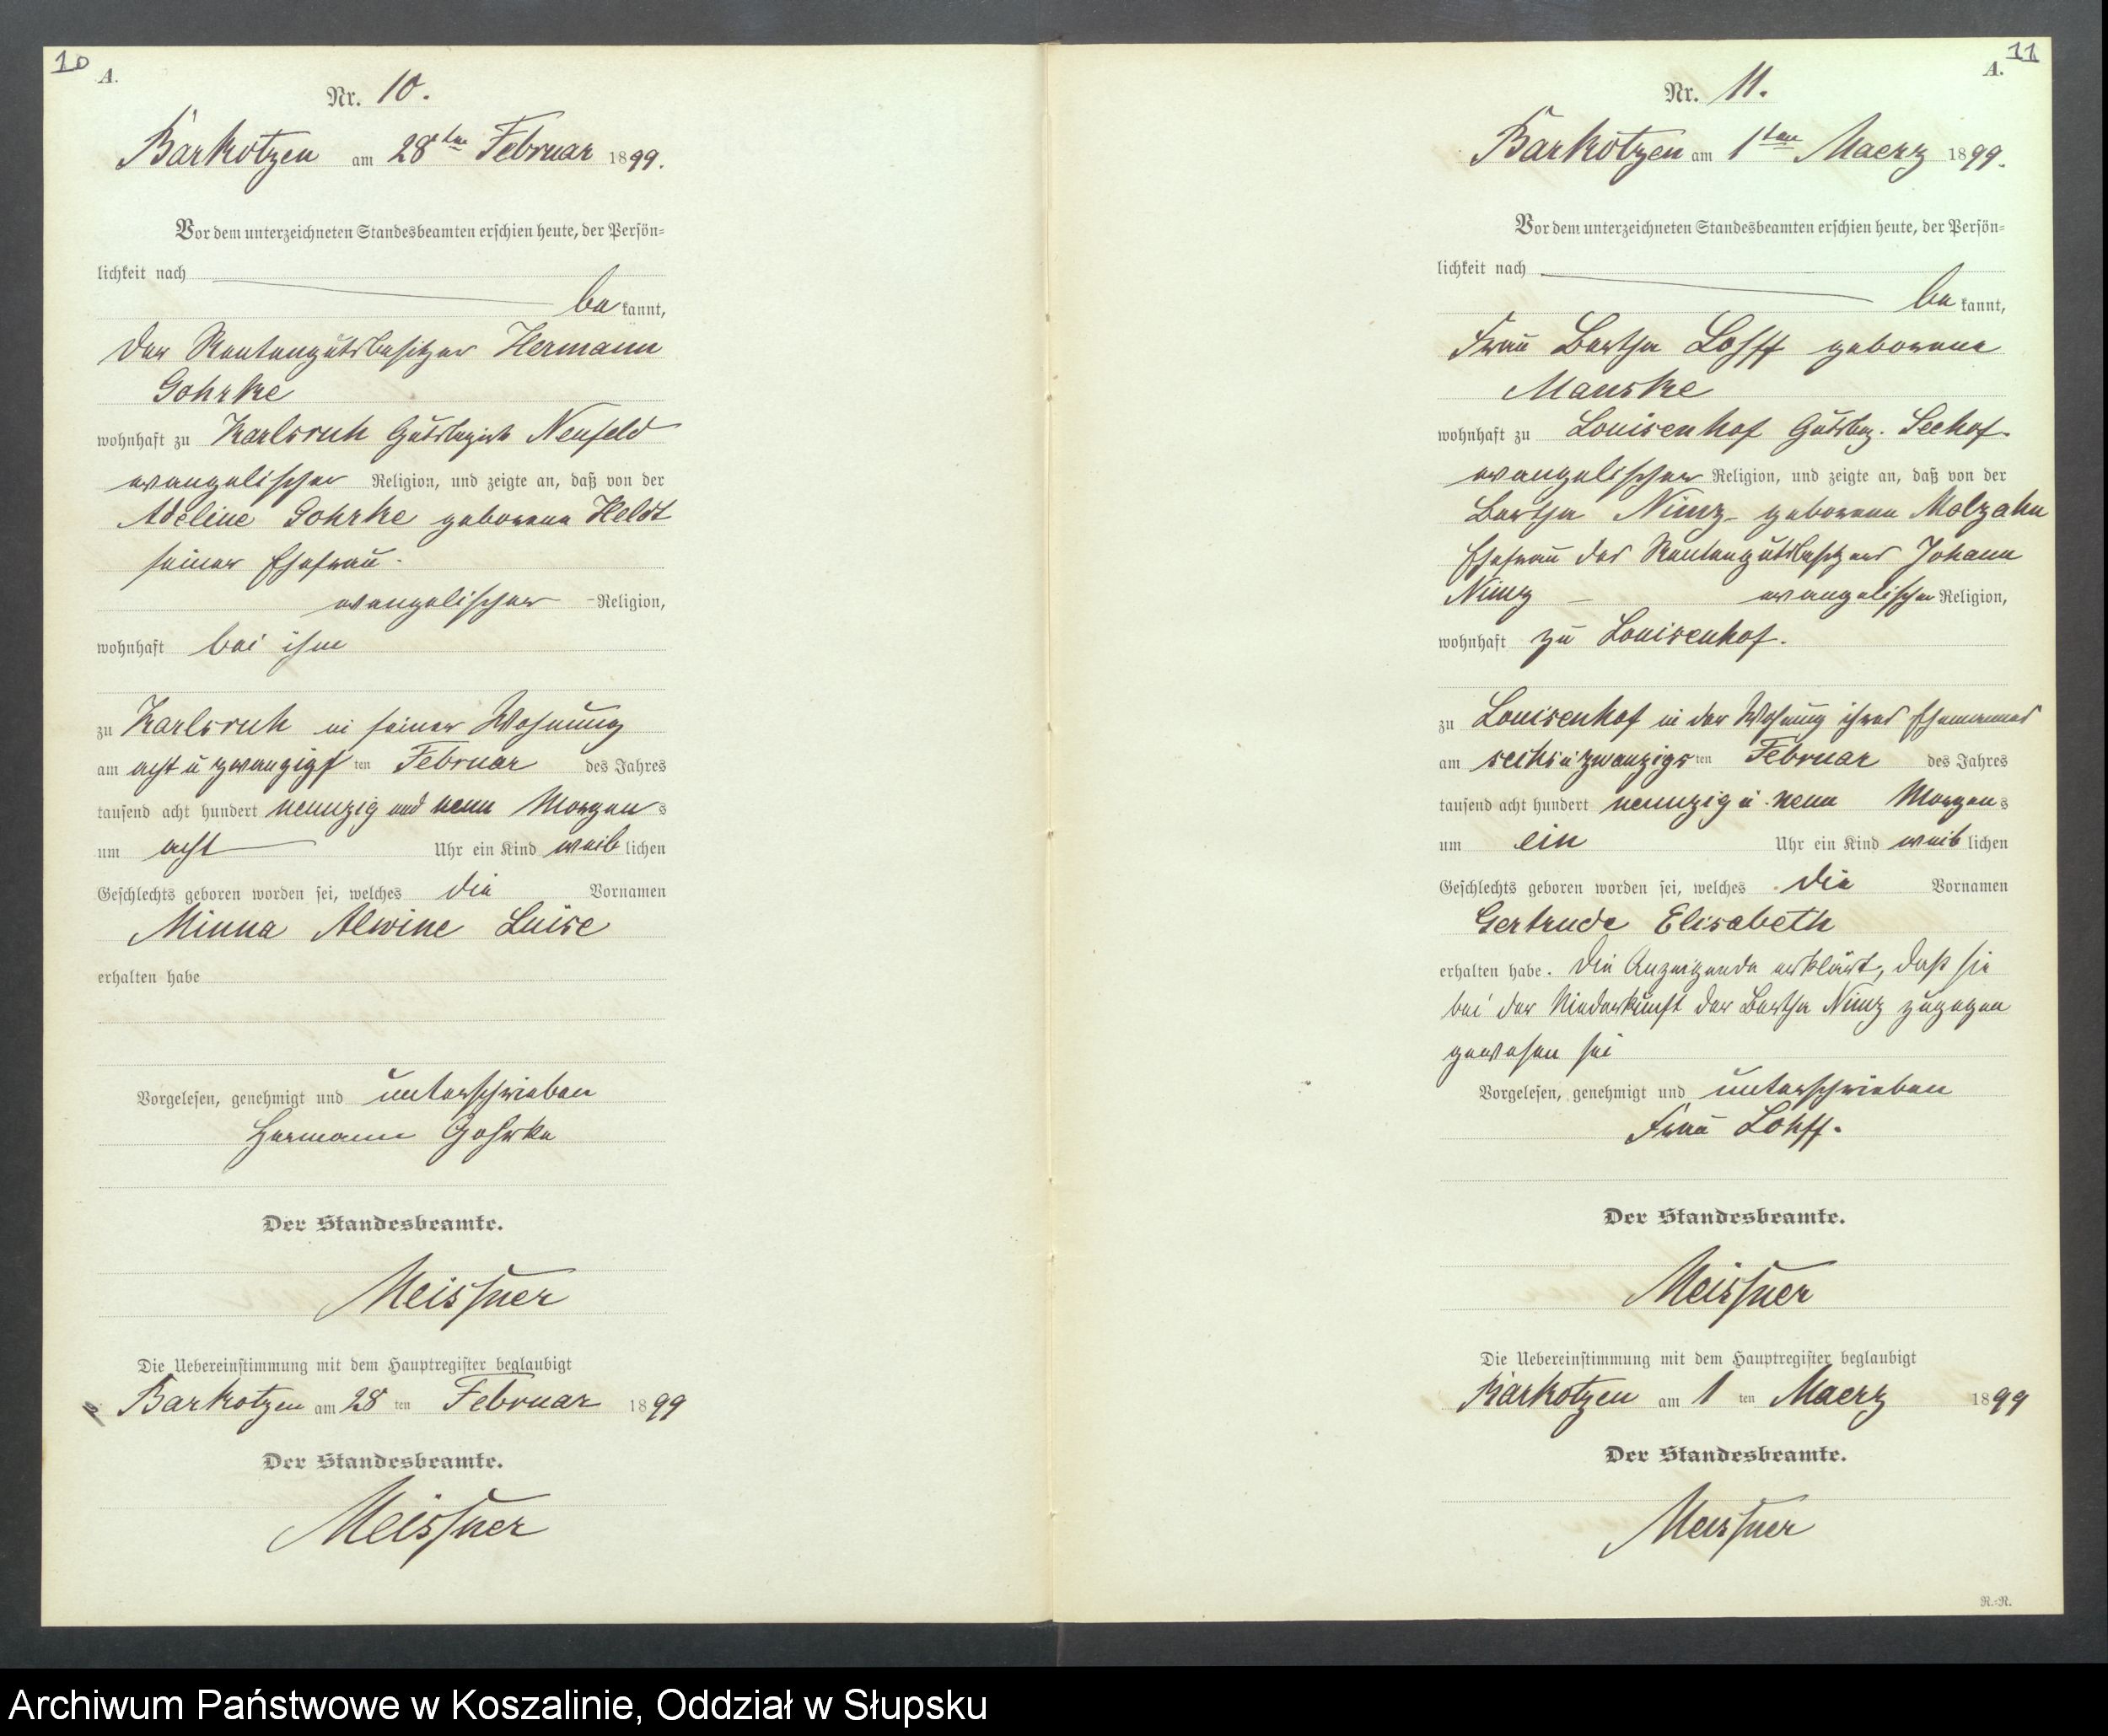 10
A.
Nr. 10.
Barkotzen am 28ten Februar 1899.
Vor dem unterzeichneten Standesbeamten erschien heute, der Persön-
lichkeit nach
bekannt,
der Rentengutsbesitzer Hermann
Gohrke
wohnhaft zu Karlsruh Gutsbezirk Neufeld
evangelischer Religion, und zeigte an, daß von der
Adeline Gohrke geborene Heldt
seiner Ehefrau.
evangelischer Religion,
wohnhaft bei ihm
zu Karlsruh in seiner Wohnung
am acht u zwanzigsten Februar des Jahres
tausend acht hundert neunzig und neun Morgens
um acht Uhr ein Kind weiblichen
Geschlechts geboren worden sei, welches die Vornamen
Minna Alwine Luise
erhalten habe
Vorgelesen, genehmigt und unterschrieben
Hermann Gohrke
Der Standesbeamte.
Meissner
Die Uebereinstimmung mit dem Hauptregister beglaubigt
Barkotzen am 28ten Februar 1899
Der Standesbeamte.
Meissner
11
A.
Nr. 11.
Barkotzen am 1ten Maerz 1899.
Vor dem unterzeichneten Standesbeamten erschien heute, der Persön-
lichkeit nach
bekannt,
Frau Bertha Lohff geborene
Manske
wohnhaft zu Louisenhof Gutsbez. Seehof
evangelischer Religion, und zeigte an, daß von der
Bertha Nimz geborene Molzahn
Ehefrau des Rentengutsbesitzers Johann
Nimz evangelischer Religion,
wohnhaft zu Louisenhof.
zu Louisenhof in der Wohnung ihres Ehemannes
am sechs u zwanzigsten Februar des Jahres
tausend acht hundert neunzig u. neun Morgens
um ein Uhr ein Kind weiblichen
Geschlechts geboren worden sei, welches die Vornamen
Gertrude Elisabeth
erhalten habe. Die Anzeigende erklärt, daß sie
bei der Niederkunft der Bertha Nimz zugegen
gewesen sei
Vorgelesen, genehmigt und unterschrieben
Frau Lohff.
Der Standesbeamte.
Meissner
Die Uebereinstimmung mit dem Hauptregister beglaubigt
Barkotzen am 1ten Maerz 1899
Der Standesbeamte.
Meissner
R.-R.
Archiwum Państwowe w Koszalinie, Oddział w Słupsku